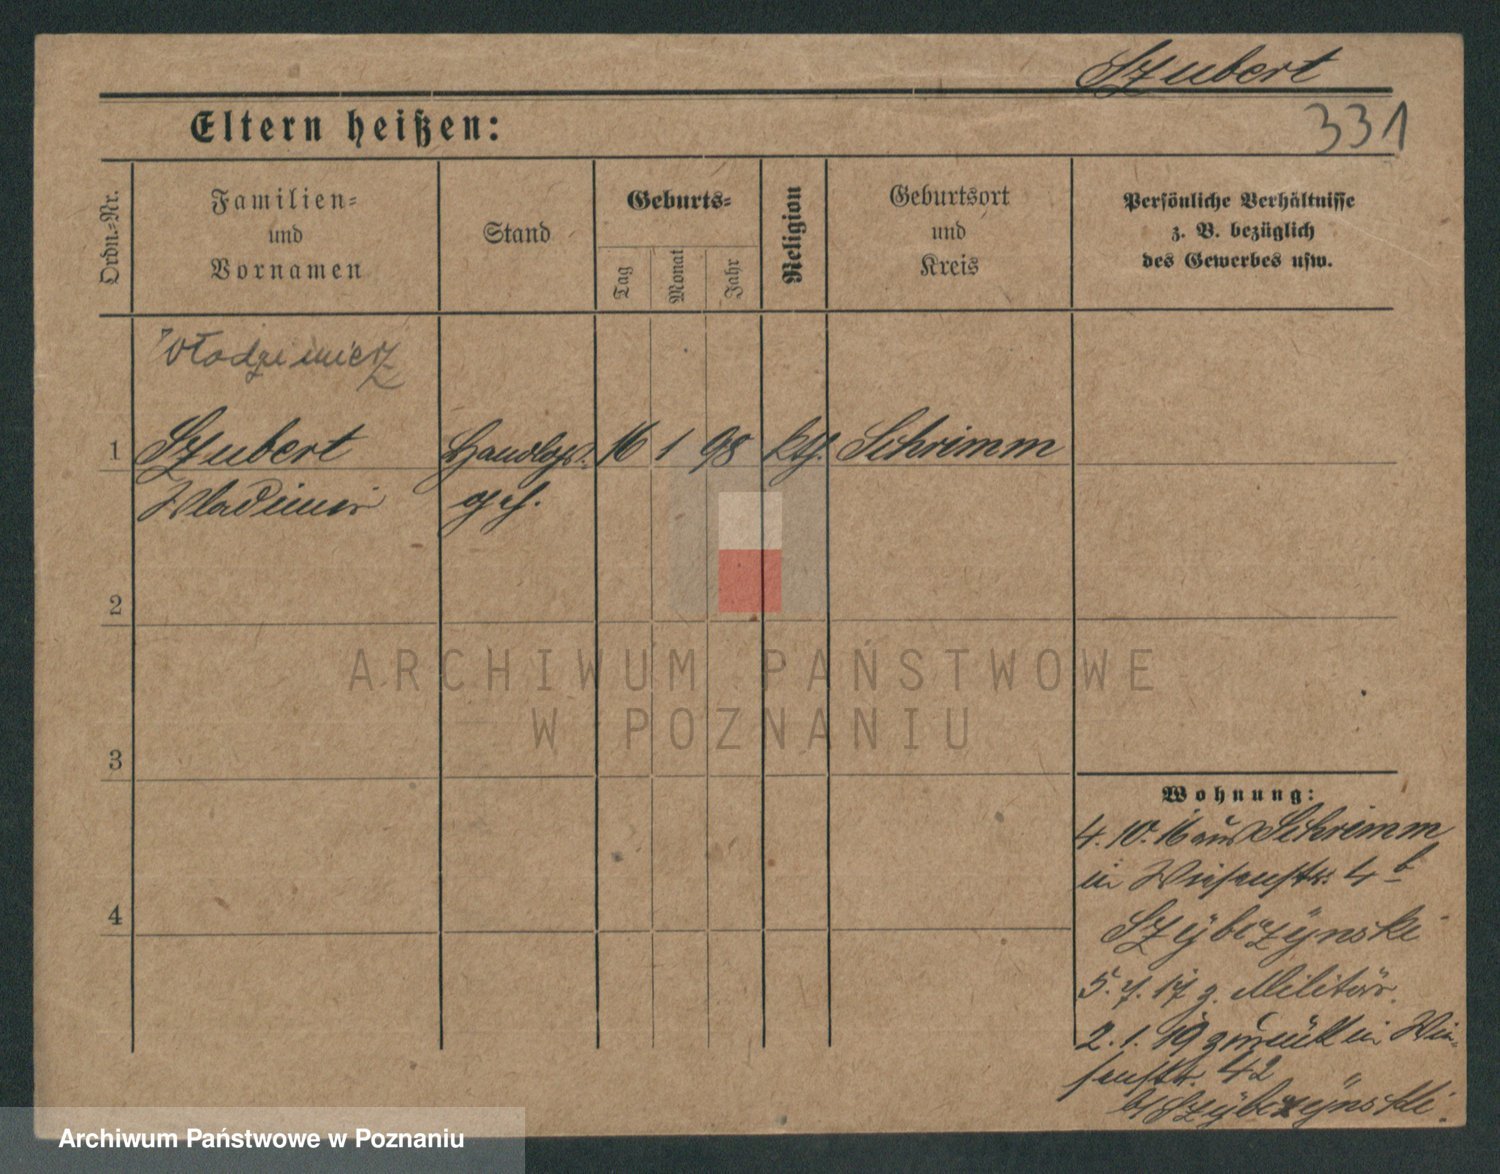 Szubert
331
Eltern heißen:
Ordn.-Nr.
Familien-
und
Vornamen
Stand
Geburts-
Tag
Monat
Jahr
Religion
Geburtsort
und
Kreis
Persönliche Verhältnisse
z. B. bezüglich
des Gewerbes usw.
Włodzimierz
1 Szubert 16 1 98 kth. Schrimm
Wladimir
2
3
4
Wohnung:
4. 10. 16 aus Schrimm
in Wiesenstr. 4 b
Szÿbczÿnski
5. 7. 17 z. Militär.
2. 1. 19 zurück in Wie-
senstr. 42
b/ Szÿbczÿnski.
ARCHIWUM PAŃSTWOWE
W POZNANIU
Archiwum Państwowe w Poznaniu